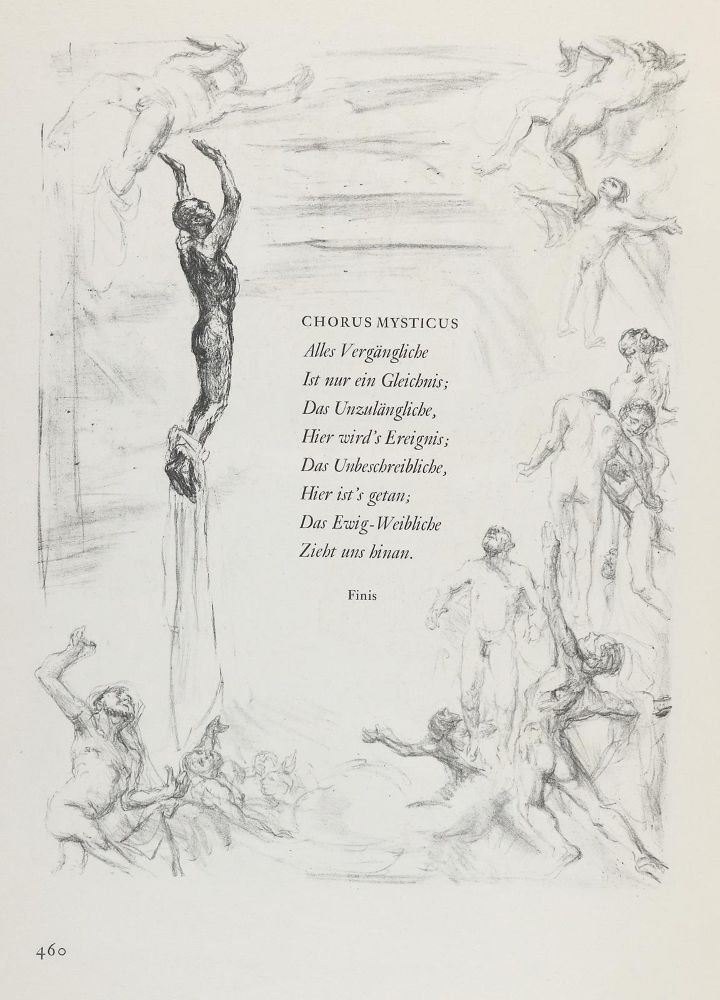 CHORUS MYSTICUS
Alles Vergängliche
Ist nur ein Gleichnis;
Das Unzulängliche,
Hier wird's Ereignis;
Das Unbeschreibliche,
Hier ist's getan;
Das Ewig-Weibliche
Zieht uns hinan.
Finis
460